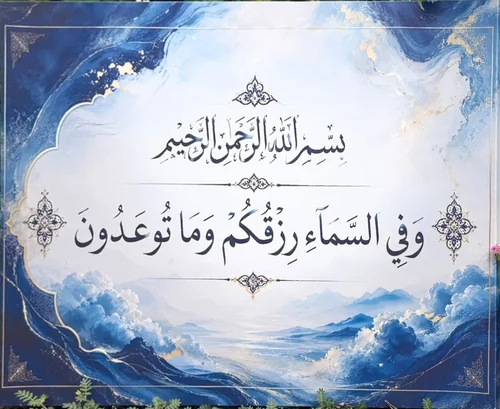 بِسْمِ اللَّهِ الرَّحْمَنِ الرَّحِيمِ
وَفِي السَّمَاءِ رِزْقُكُمْ وَمَا تُوعَدُونَ